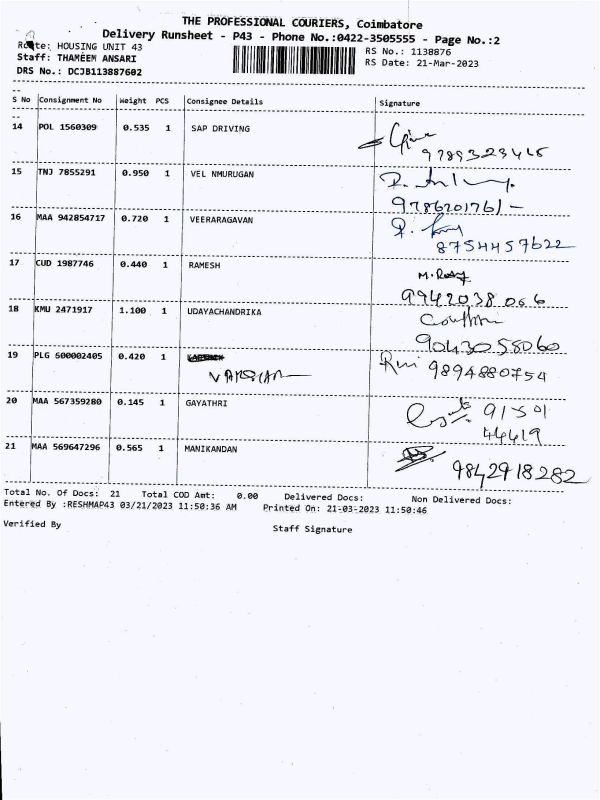 THE PROFESSIONAL COURIERS, Coimbatore
Delivery Runsheet - P43 - Phone No.:0422-3505555 - Page No.:2
Route: HOUSING UNIT 43
RS No.: 1138876
Staff: THAMEEM ANSARI
RS Date: 21-Mar-2023
DRS No.: DCJB113887602
S No Consignment No Weight PCS Consignee Details Signature
14 POL 1560309 0.535 1 SAP DRIVING
9789323415
15 TNJ 7855291 0.950 1 VEL NMURUGAN
9786201761-
16 MAA 942854717 0.720 1 VEERARAGAVAN
8754457622
17 CUD 1987746 0.440 1 RAMESH
9942038066
18 KMU 2471917 1.100 1 UDAYACHANDRIKA
9043058060
19 PLG 600002405 0.420 1
9894880754
20 MAA 567359280 0.145 1 GAYATHRI
91501
44419
21 MAA 569647296 0.565 1 MANIKANDAN
9842918282
Total No. Of Docs: 21 Total COD Amt: 0.00 Delivered Docs: Non Delivered Docs:
Entered By :RESHMAP43 03/21/2023 11:50:36 AM Printed On: 21-03-2023 11:50:46
Verified By Staff Signature